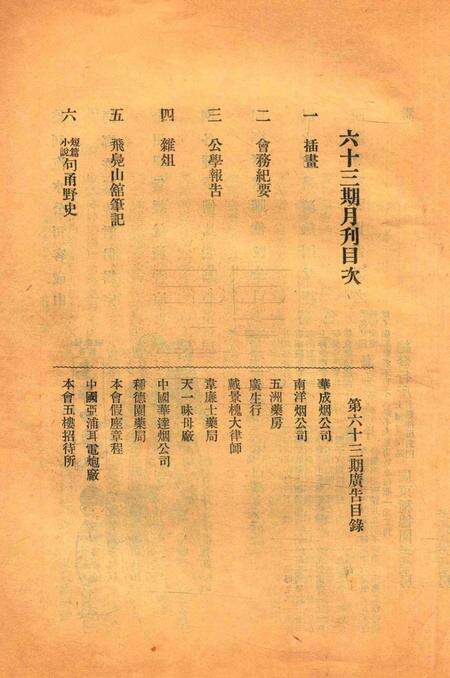 六十三期月刊目次
一 插畫
二 會務紀要
三 公學報告
四 雜俎
五 飛鳧山館筆記
六 短篇小説 句甬野史
第六十三期廣告目錄
華成烟公司
南洋烟公司
五洲藥房
廣生行
戴景槐大律師
韋廉士藥局
天一味母廠
中國華達烟公司
種德園藥局
本會假座章程
中國亞浦耳電炮廠
本會五樓招待所